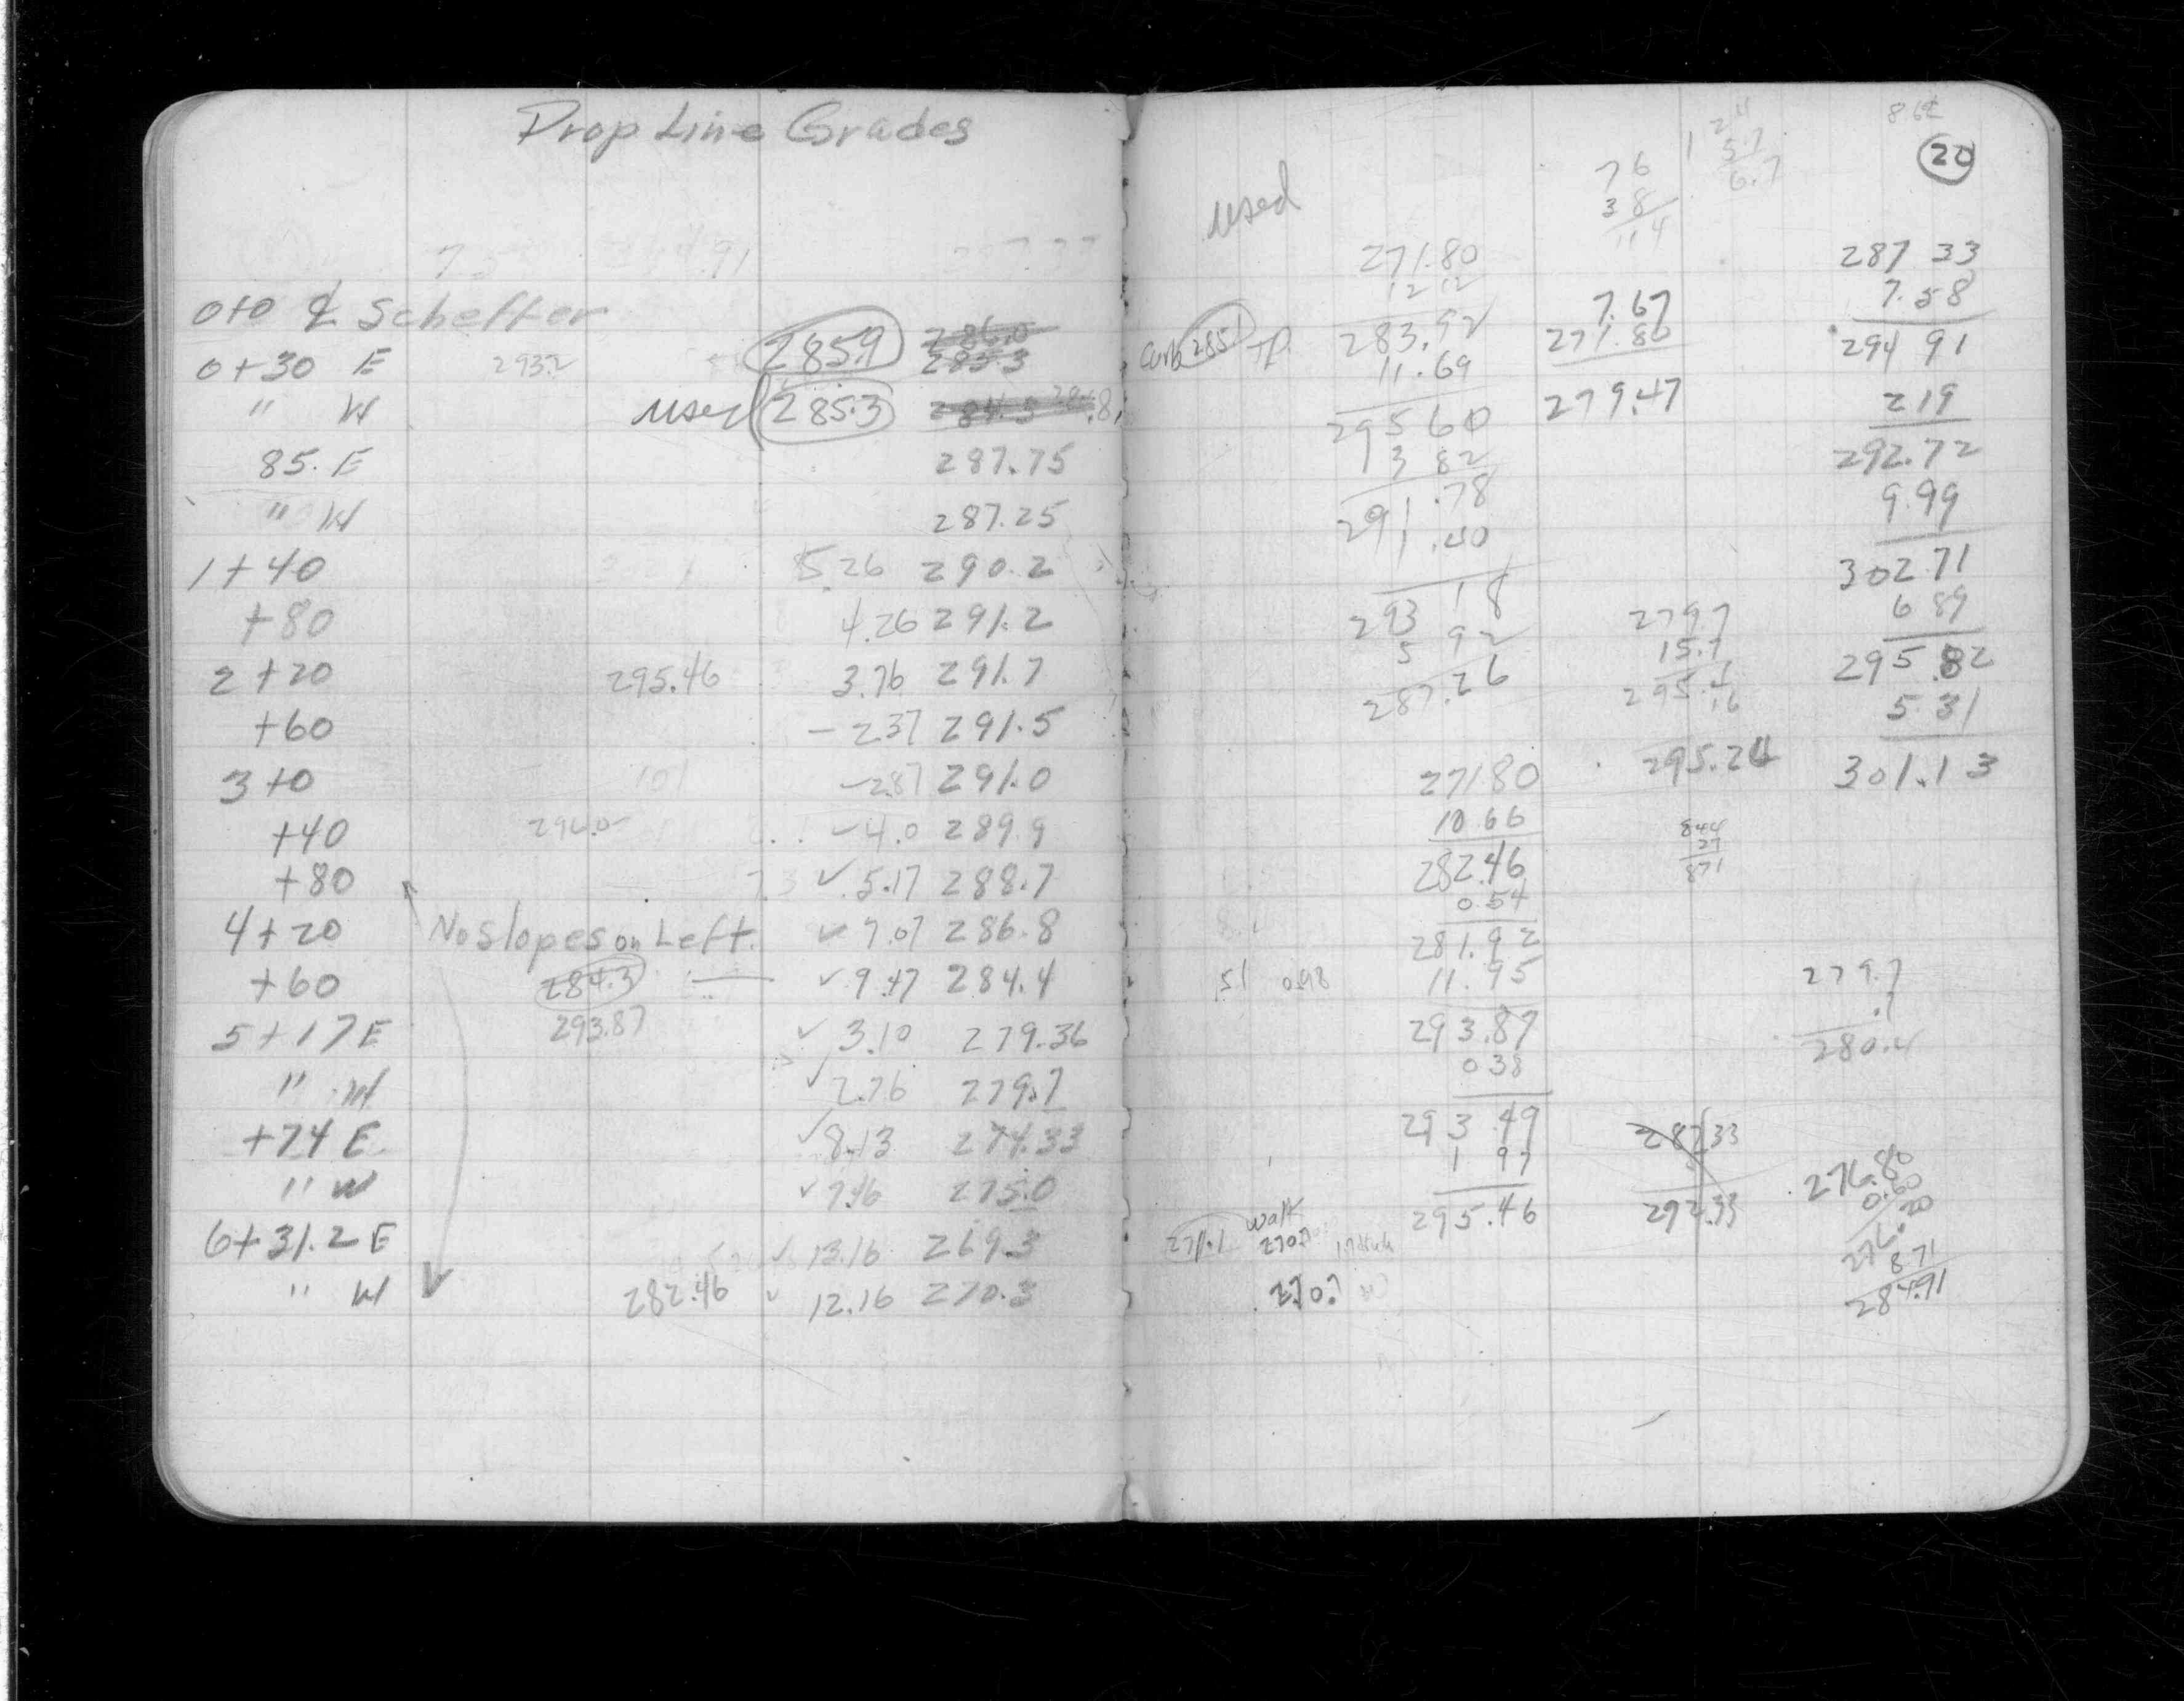 Prop Line Grades
0+0 ℄ Scheffer
0+30 E 293.2 285.9 286.0 285.3
" W used 285.3 284.5
85. E 287.75
" W 287.25
1+40 5.26 290.2
+80 4.26 291.2
2+20 295.46 3.76 291.7
+60 - 2.37 291.5
3+0 - 2.87 291.0
+40 294.0 ✓ 4.0 289.9
+80 ✓ 5.17 288.7
4+20 No Slopes on Left. ✓ 7.07 286.8
+60 284.3 — ✓ 9.47 284.4
5+17 E 293.87 ✓ 3.10 279.36
" W ✓ 2.76 279.7
+74 E ✓ 8.13 274.33
" W ✓ 7.46 275.0
6+31.2 E ✓ 13.16 269.3
" W 282.46 ✓ 12.16 270.3
20
used
76
38
114
5.7
6.7
Curb 285.1 TP.
271.80
12 12
283.92
11.69
295 60
3 82
291.78
1.40
293 18
5 92
287.26
7.67
271.80
279.47
287 33
7.58
294 91
2 19
292.72
9.99
302.71
6 89
295.82
5 31
301.13
279 7
15.7
295.4
295.24
271 80
10.66
282.46
0.54
281.92
11.95
293.87
0 38
293 49
1 97
295.46
844
27
871
51 0.98
279.7
.7
280.4
287.33
292.33
276.80
0.60
276.20
8 71
284.91
271.1 walk 270.7
270.7